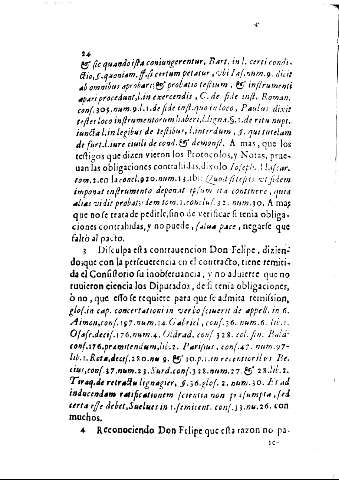 24
& sic quando ista coniungerentur, Bart. in l. certi condi-
ctio, §. quoniam, ff. si certum petatur, vbi Ias. num. 9. dicit
ab omnibus aprobari; & probatio testium, & instrumenti
apari procedunt, l. in exercendis, C. de fide inst. Roman.
conf. 305. num. 9. l. 1. de fide inst. quo in loco, Paulus dixit
testes loco instrumentorum haberi, l. signa. §. 1. de ritu nupt.
iuncta l. in legibus de testibus, l. interdum, §. qui tutelam
de furt. l. iure ciuili de cond. & demonst. A mas, que los
testigos que dizen vieron los Protocolos, y Notas, prue-
uan las obligaciones contrahidas, dixolo Ioseph. Mascar.
tom. 2. en la conel. 920. num. 13. ibi: Quod si testis vt fidem
imponat instrumento deponat ipsum ita continere, quia
alias vidit probat: idem tom. 1. concl. 32. num. 30. A mas
que no se trata de pedirle, sino de verificar si tenia obliga-
ciones contrahidas, y no puede, salua pace, negarse que
faltò al pacto.
3 Disculpa esta contrauencion Don Felipe, dizien-
do; que con la perseuerencia en el contracto, tiene remiti-
da el Consistorio su inobseruancia, y no aduierte que no
tuuieron ciencia los Diputados, de si tenia obligaciones,
ò no, que esso se requiere para que se admita remission,
glos. in cap. concertationi in verio sciuerit de appell. in 6.
Aimon, conf. 197. num. 24. Gabriel, conf. 36. num. 6. lib. 2.
Osasc. decis. 176. num. 4. Oldrad. conf. 328. col. fin. Bald.
conf. 176. præmittendum, lib. 2. Parisius, conf. 47. num. 97.
lib. 1. Rota, decis. 280. nu 9. & 30. p. 1. in recentioribus Be-
cius, conf. 37. num. 23. Surd. conf. 328. num. 27. & 28. lib. 2.
Tiraq. de retractu lignagier, §. 36. glos. 2. num. 30. Et ad
inducendam ratificationem scientia non præsumpta, sed
certa esse debet, Suelues in 1. semicent. conf. 33. nu. 26. con
muchos.
4 Reconociendo Don Felipe que esta razon no pa-
re-